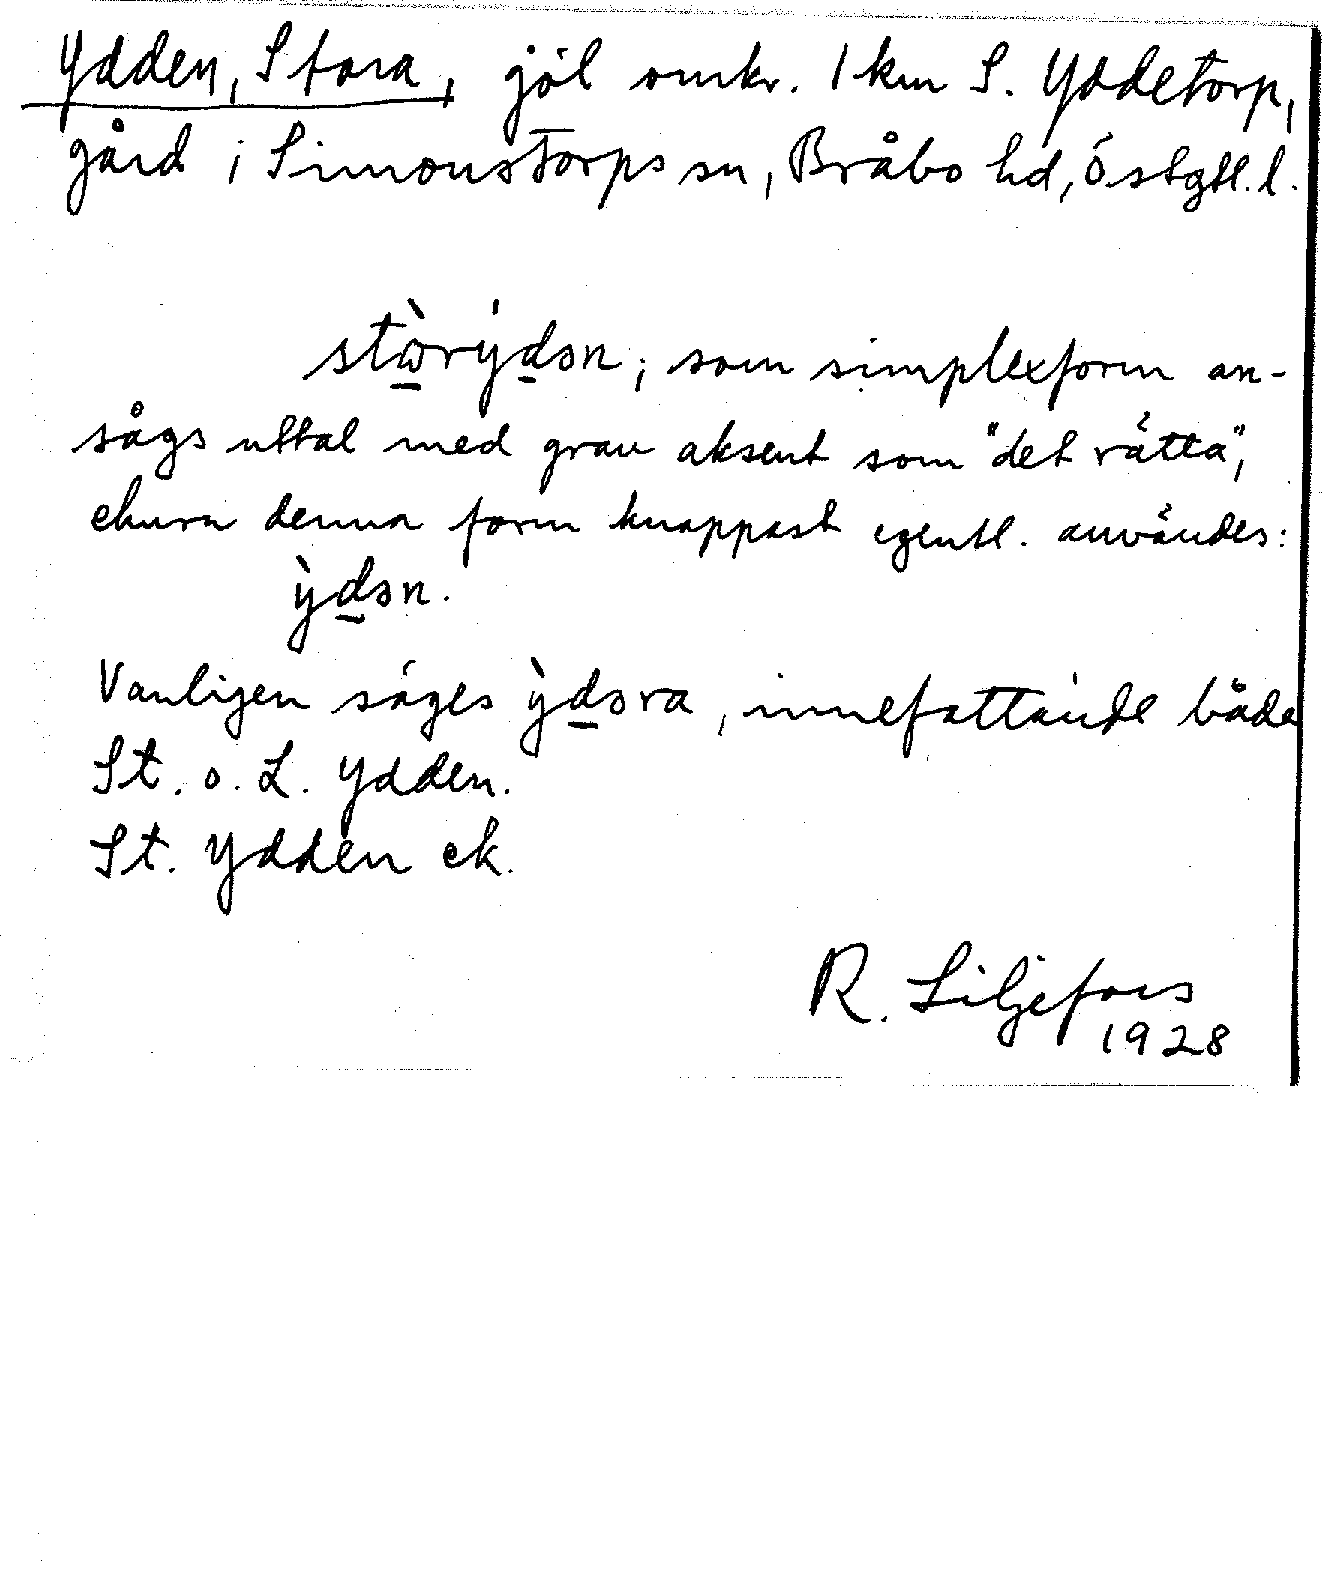 Ydden, Stora, göl omkr. 1 km S. Yddetorp,
gård i Simonstorps sn, Bråbo hd, Östgtl. l.
stὼrýdən; som simplexform an-
sågs uttal med grav aksent som "det rätta",
ehuru denna form knappast egentl. användes:
ỳdən.
Vanligen säges ỳdəra, innefattande båda
St. o. L. Ydden.
St. Ydden ek.
R. Liljefors
1928